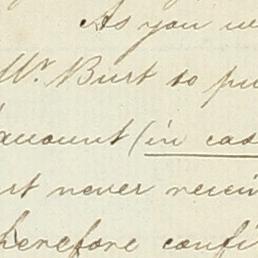 As you we
Mr. Burt to pu
amount (in cas
rt never recei
herefore confi